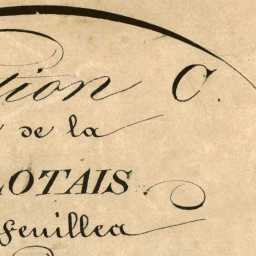 tion C.
de la
LOTAIS.
Feuillea